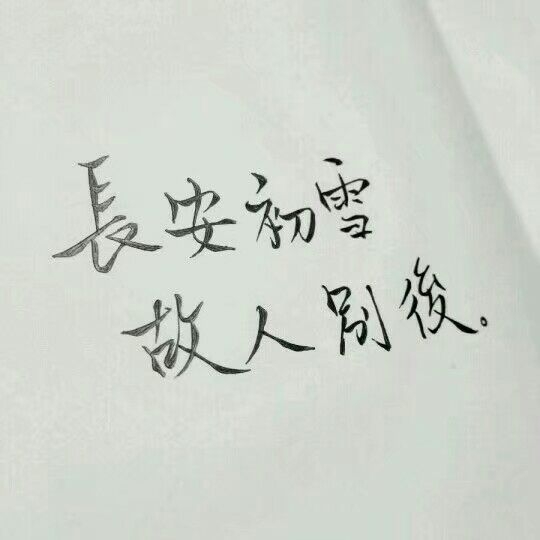 長安初雪
故人别後。